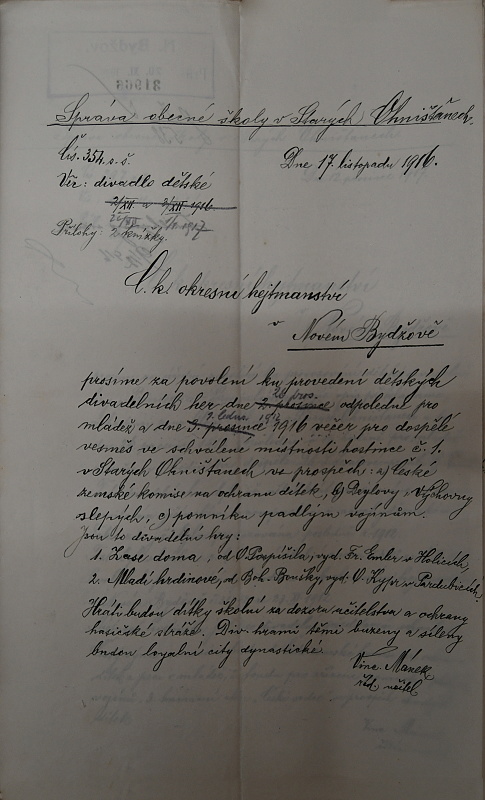 N. Bydžov
31908
Správa obecné školy v Starých Ohništanech.
Čís. 354. s. š.
Dne 17. listopadu 1916.
Věc: divadlo dětské
2/XII. a 3/XII. 1916
1917
Přílohy: 2 knížky.
C. k. okresní hejtmanství
v
Novém Bydžově
prosíme za povolení ku provedení dětských
pros.
divadelních her dne 2. prosince odpoledne pro
1. ledna
mládež a dne 3. prosince 1916 večer pro dospělé
vesměs ve schválené místnosti hostince č. 1.
v Starých Ohništanech ve prospěch: a) české
zemské komise na ochranu dítek, b) Deylovy Výchovny
slepých, c) pomníku padlým vojínům.
Jsou to divadelní hry:
1. Zase doma, od O. Pospíšila, vyd. Fr. Emler v Holicích,
2. Mladí hrdinové, od Boh. Brušky, vyd. O. Kypr v Pardubicích.
Hráti budou dítky školní za dozoru učitelstva a ochrany
hasičské stráže. Div. hrami těmi buzeny a síleny
budou loyalní city dynastické.
Vinc. Mánek
říd. učitel